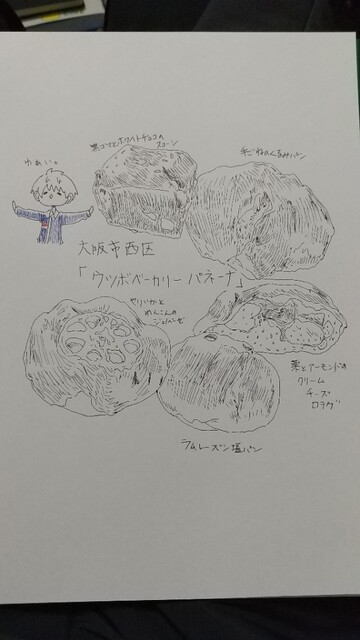 黒ゴマとホワイトチョコの
スコーン
手ごねのくるみパン
わぁい。
大阪市西区
「ウツボベーカリー パネーナ」
やりいかと
れんこんの
ジェノベーゼ
栗とアーモンドの
クリーム
チーズ
ロデヴ
ラムレーズン塩パン